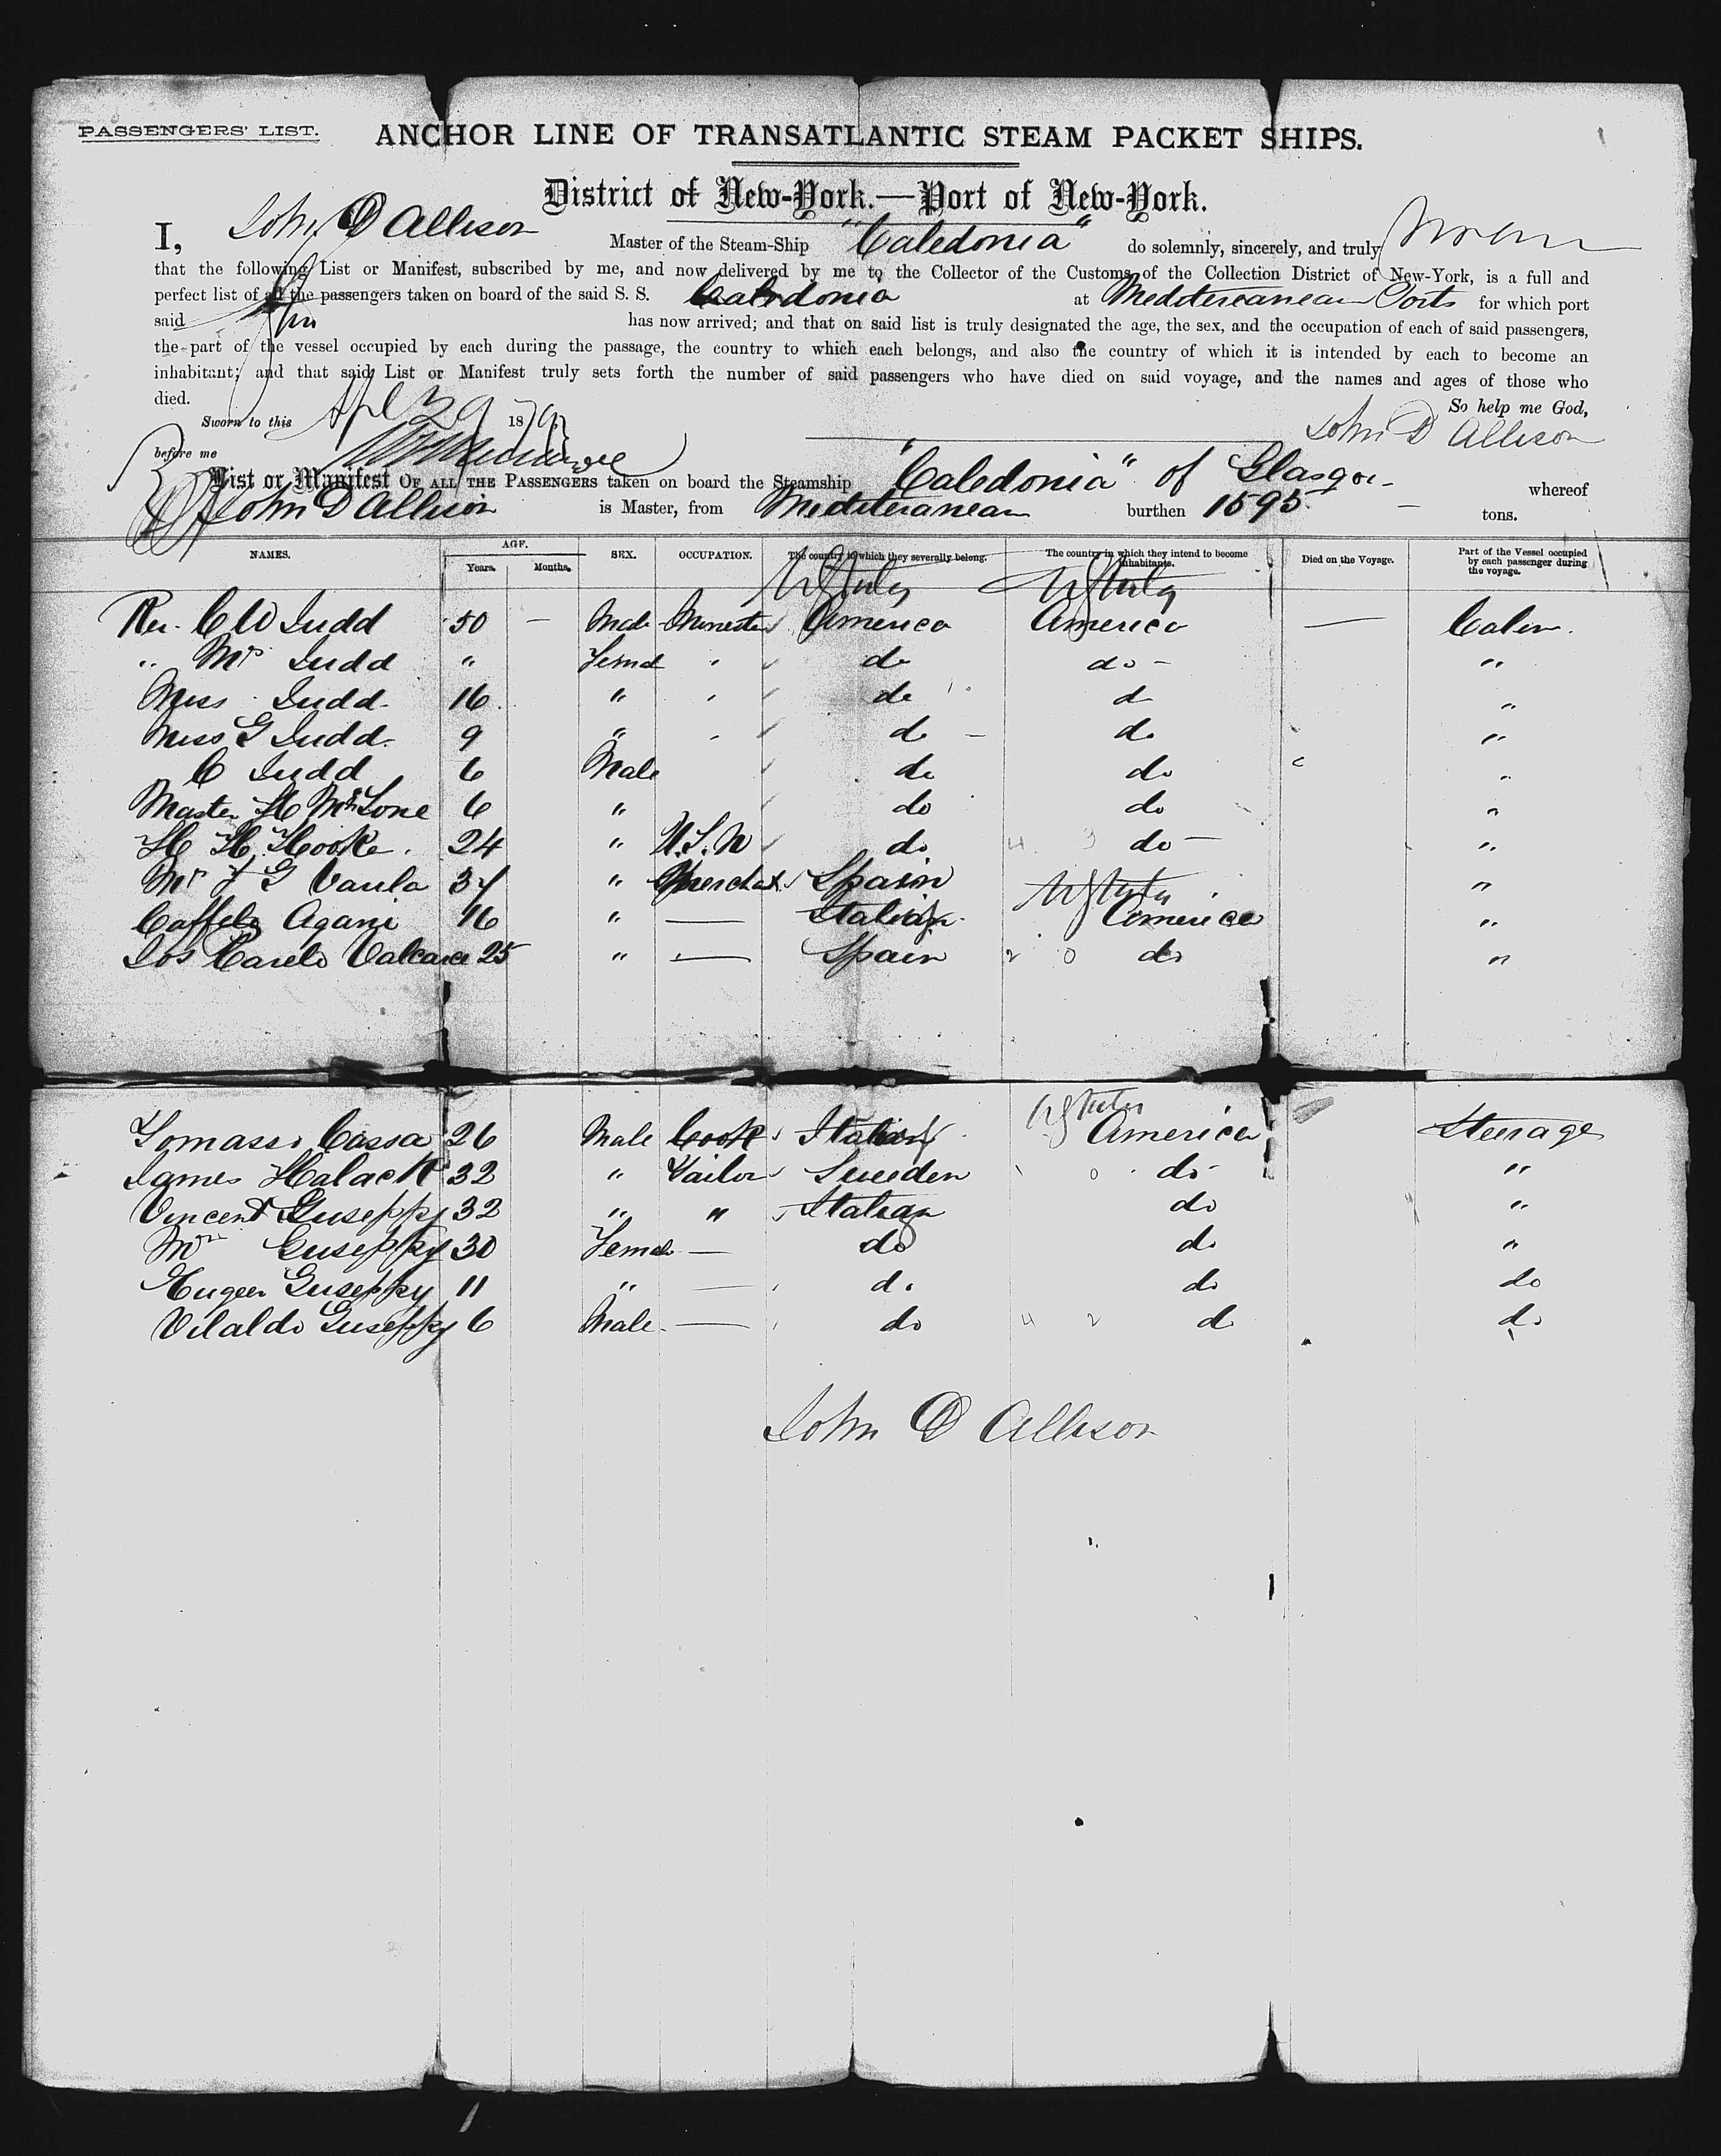 PASSENGERS' LIST.
ANCHOR LINE OF TRANSATLANTIC STEAM PACKET SHIPS.
District of New-York.—Port of New-York.
I, John D Allison Master of the Steam-Ship "Caledonia" do solemnly, sincerely, and truly swear
that the following List or Manifest, subscribed by me, and now delivered by me to the Collector of the Customs of the Collection District of New-York, is a full and
perfect list of all the passengers taken on board of the said S. S. Caledonia at Mediterranean Ports for which port
said has now arrived; and that on said list is truly designated the age, the sex, and the occupation of each of said passengers,
the part of the vessel occupied by each during the passage, the country to which each belongs, and also the country of which it is intended by each to become an
inhabitant; and that said List or Manifest truly sets forth the number of said passengers who have died on said voyage, and the names and ages of those who
died.
So help me God,
Sworn to this Apl 29 1879
John D Allison
before me
List or Manifest OF ALL THE PASSENGERS taken on board the Steamship "Caledonia" of Glasgow whereof
John D Allison is Master, from Mediteranean burthen 1595 tons.
NAMES. AGE. Years. Months. SEX. OCCUPATION. The country to which they severally belong. The country in which they intend to become inhabitants. Died on the Voyage. Part of the Vessel occupied by each passenger during the voyage.
U States U States
Rev. C W Judd 50 — Male Minister America America — Cabin.
" Mrs Judd " Femal " do do - "
Miss Judd 16 " " do do "
Miss G Judd 9 " " do - do "
C Judd 6 Male do do "
Master H Lone 6 " do do "
H H Hooke. 24 " U.S.N do 4 3 do — "
Mr F G Varela 34 " Merchat Spain U States "
Agani 16 " — Italian America "
Jos Valcarce 25 " — Spain 2 0 do "
U States
Tomasso Cassa 26 Male Cook Italian America Steerage
James Halack 32 " Tailor Sweeden 0 do "
Vincent Guseppy 32 " " Italian do "
Mrs Guseppy 30 Femal — do do "
Eugeen Guseppy 11 " — do do do
Vilaldo Guseppy 6 Male — do 4 2 do do
John D Allison